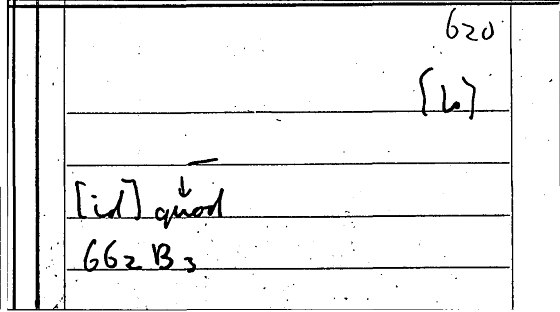 620
[b]
[id] quod
662 B3